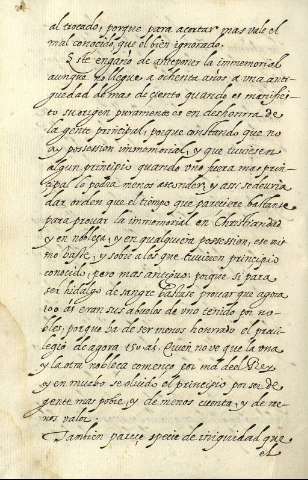 al trocado, porque para acertar mas vale el
mal conocido, que el bien ignorado.
Este engaño de anteponer la immemorial
aunque no llegue a ochenta años a una anti
guedad de mas de ciento quando es manifies
to su origen puramente es en deshonrra de
la gente principal, porque constando que no
ay possession immemorial, y que tuviesen
algun principio quando uno fuera mas prin
cipal lo podia menos asconder, y assi se devria
dar orden que el tiempo que pareciere bastante
para provar la immemorial en Christiandad
y en nobleza, y en qualquiera possession, ese mis
mo baste, y sobre a los que tuvieren principio
conocido, pero mas antiguo: porque si para
ser hidalgo de sangre bastase provar que agora
100 as eran sus abuelos de uno tenido por no
bles, porque ha de ser menos honrrado el privi
legio de agora 150 as. Quien no ve que la una
y la otra nobleza començo por md del Rey
y en mucho se oluido el principio por ser de
gente mas pobre, y de menos cuenta, y de me
nos valor.
Tambien pareçe specie de iniquidad que
el